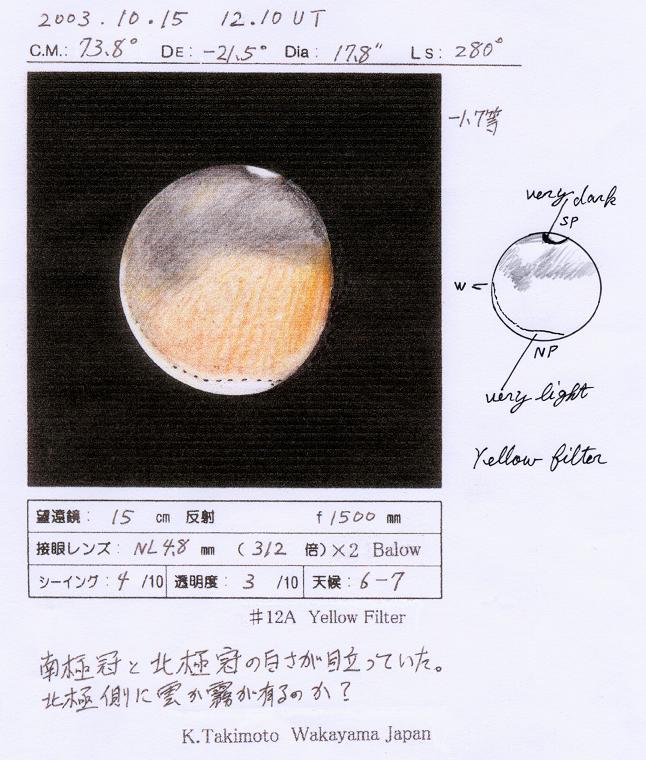 2003.10.15 12.10 UT
C.M.: 73.8° DE: -21.5° Dia: 17.8" Ls: 280°
-1.7等
very dark
SP
W
NP
very light
Yellow filter
望遠鏡: 15 cm 反射 f 1500 mm
接眼レンズ: NL 4.8 mm (312 倍)×2 Balow
シーイング: 4 /10 透明度: 3 /10 天候: 6-7
#12A Yellow Filter
南極冠と北極冠の白さが目立っていた。
北極側に雲か霧が有るのか?
K.Takimoto Wakayama Japan